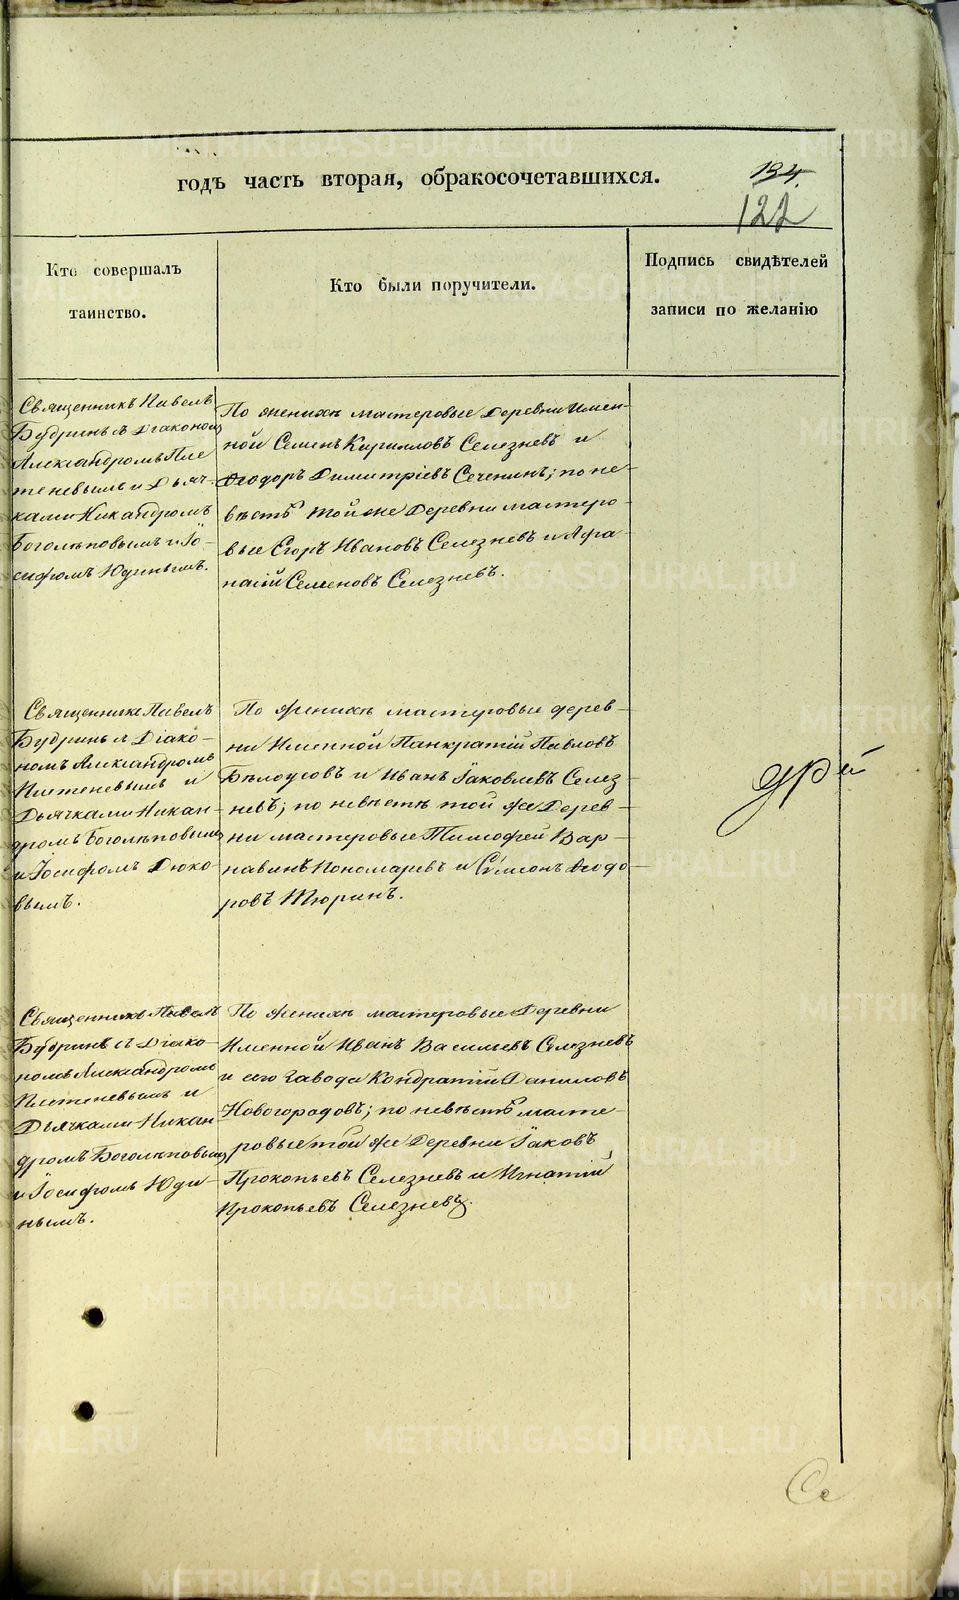 годъ часть вторая, обракосочетавшихся.
134.
122
Кто совершалъ
таинство.
Кто были поручители.
Подпись свидѣтелей
записи по желанію
Священникъ Павелъ
Будринъ съ Діакономъ
Александромъ Пле
теневымъ и Дьяч-
ками Никандромъ
Боголѣповымъ и Іо-
сифомъ Юдинымъ.
По женихѣ мастеровые Деревни Имен-
ной Семенъ Кирилловъ Селезневъ и
Ѳеодоръ Димитріевъ Сеченинъ; по не-
вѣстѣ той же Деревни мастеро-
вые Егоръ Ивановъ Селезневъ и Афа-
насій Семеновъ Селезневъ.
Священникъ Павелъ
Будринъ съ Діако-
номъ Александромъ
Плетеневымъ и
Дьячками Никан-
дромъ Боголѣповымъ
и Іосифомъ Дюко-
вымъ.
По женихѣ мастеровые дерев-
ни Именной Панкратій Павловъ
Бѣлоусовъ и Иванъ Іаковлевъ Селез-
невъ; по невѣстѣ той же Дерев-
ни мастеровые Тимофей Вар-
навинъ Пономаревъ и Симеонъ Ѳеодо-
ровъ Тюринъ.
Священникъ Павелъ
Будринъ съ Діако-
номъ Александромъ
Плетеневымъ и
Дьячками Никан
дромъ Боголѣповымъ
и Іосифомъ Юди-
нымъ.
По женихѣ мастеровые Деревни
Именной Иванъ Васильевъ Селезневъ
и сего завода Кондратій Даниловъ
Новогородовъ; по невѣстѣ масте-
ровые той же Деревни Іаковъ
Прокопьевъ Селезневъ и Игнатій
Прокопьевъ Селезневъ.
дрей
Се
METRIKI.GASO-URAL.RU